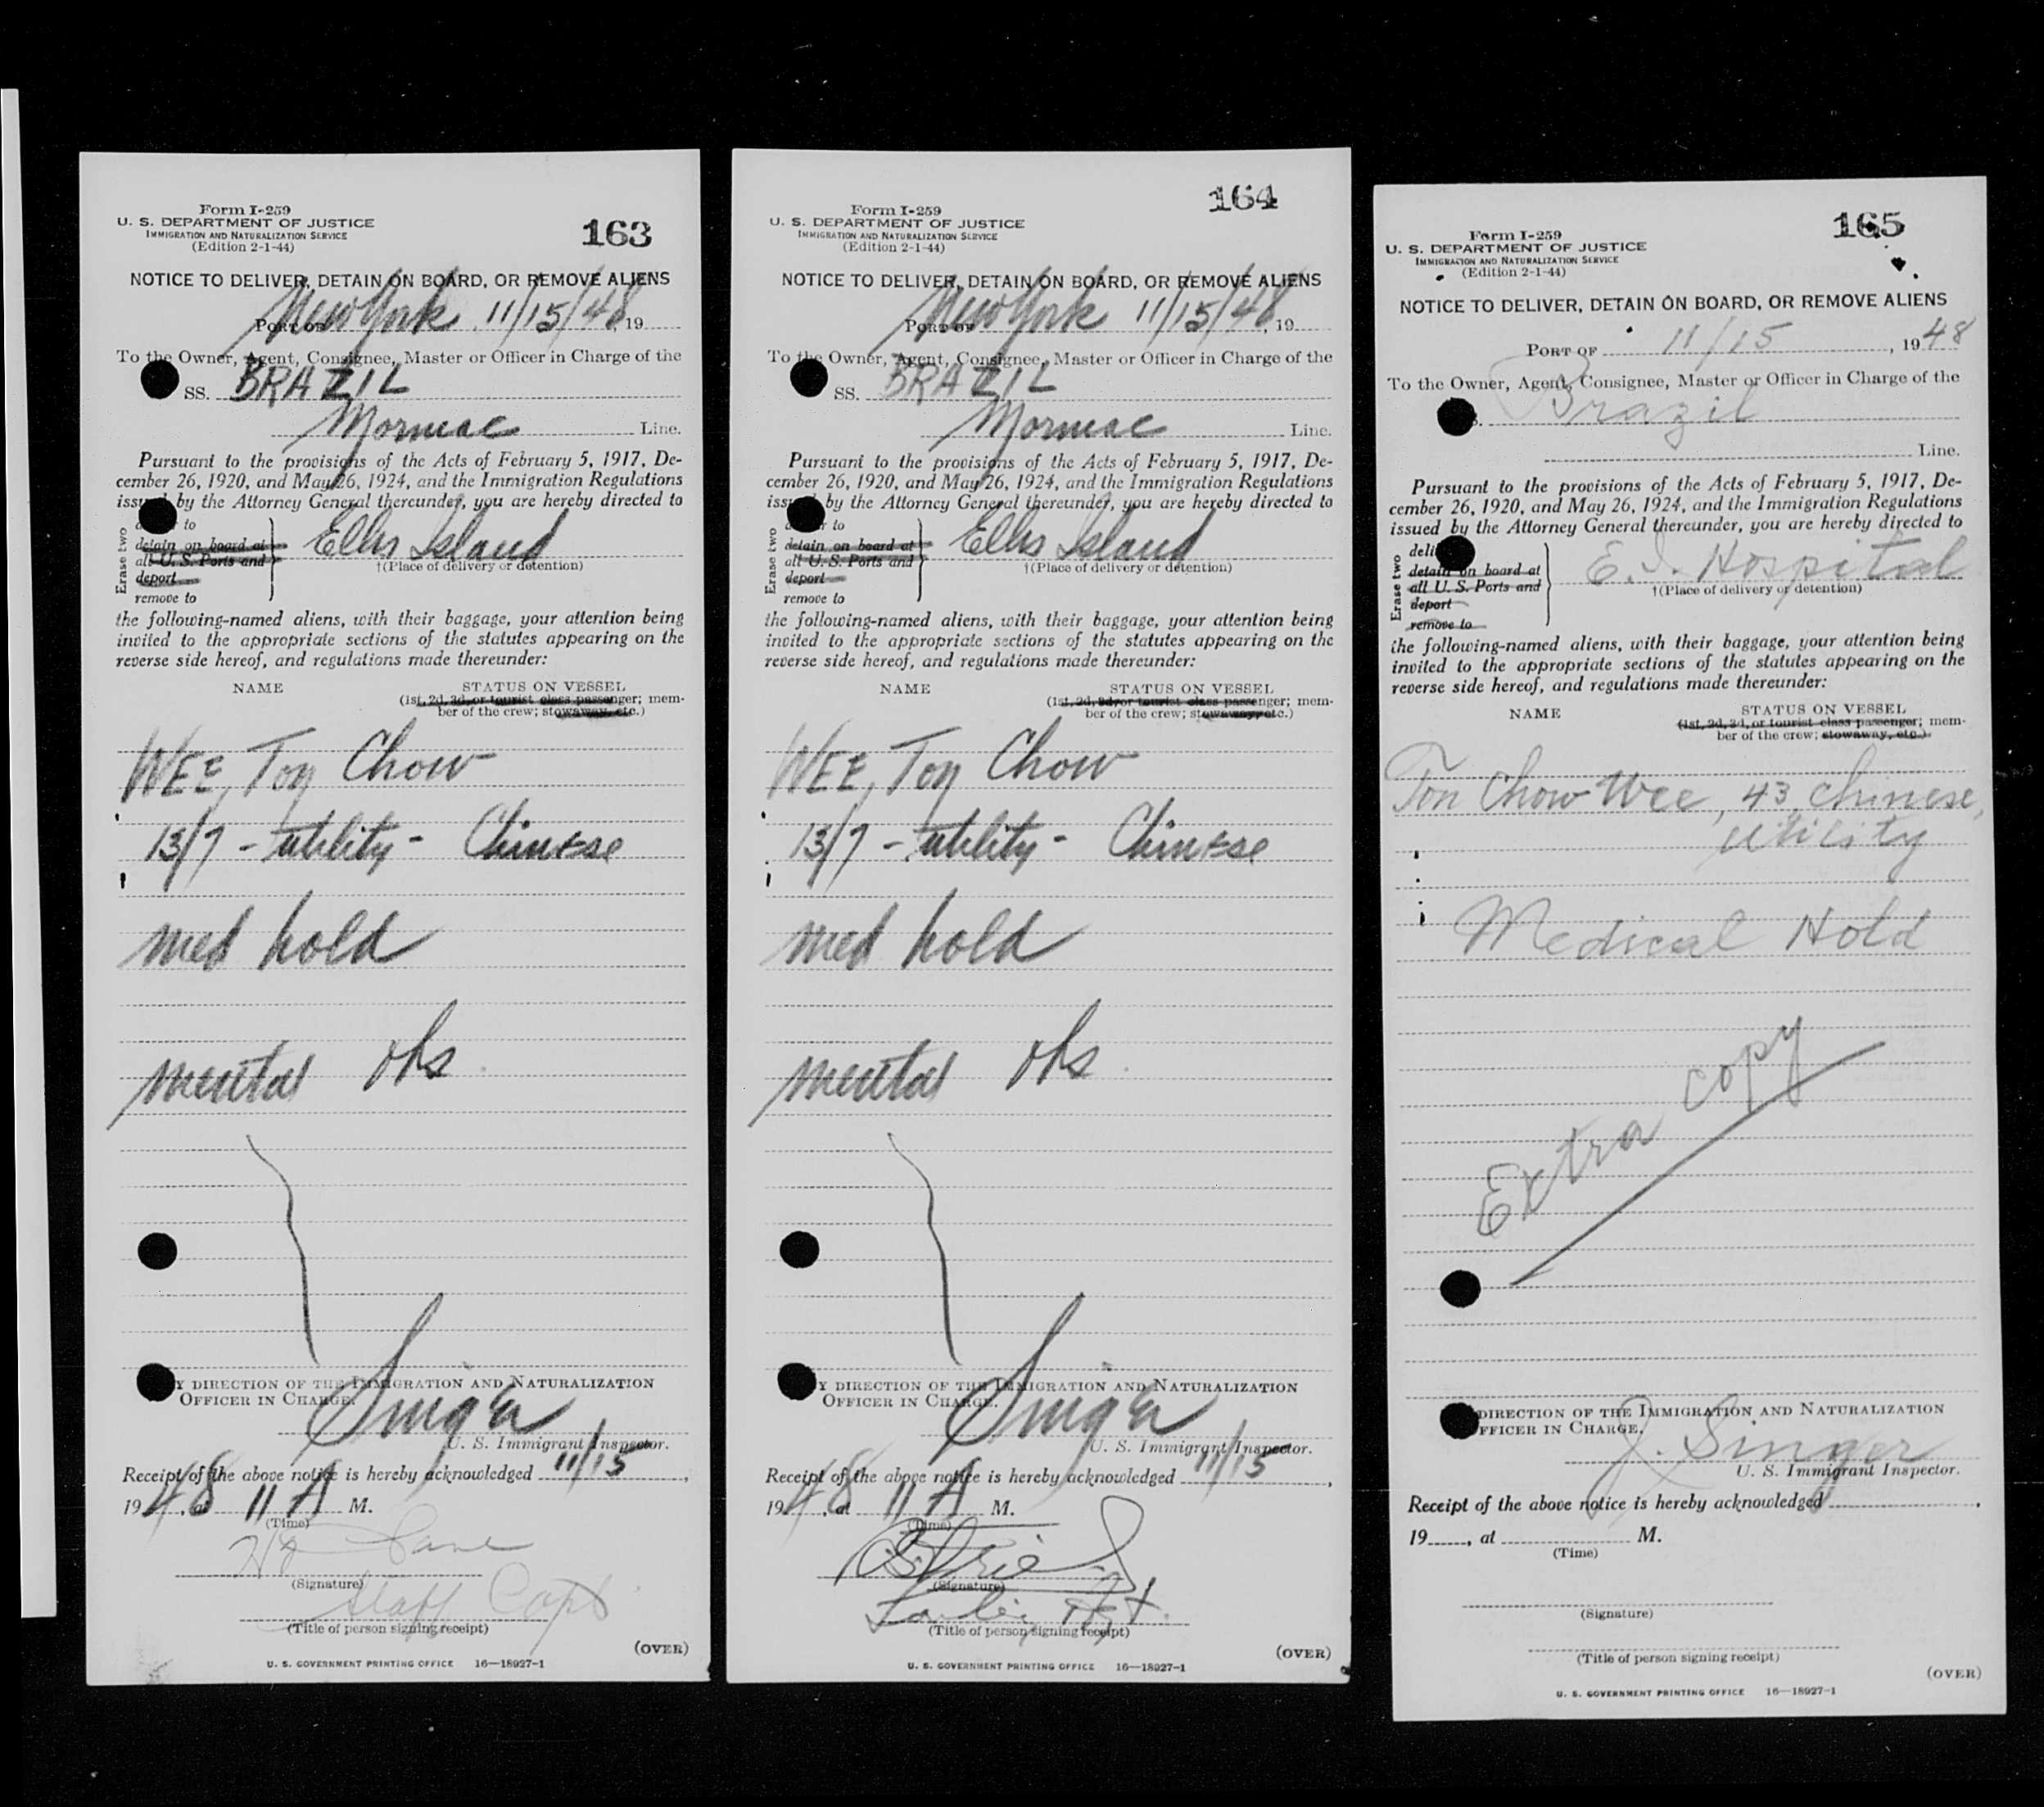 Form I-259
U. S. DEPARTMENT OF JUSTICE
IMMIGRATION AND NATURALIZATION SERVICE
(Edition 2-1-44)
163
NOTICE TO DELIVER, DETAIN ON BOARD, OR REMOVE ALIENS
PORT OF New York 11/15/48, 19
To the Owner, Agent, Consignee, Master or Officer in Charge of the
SS. BRAZIL
Mormac Line.
Pursuant to the provisions of the Acts of February 5, 1917, De-
cember 26, 1920, and May 26, 1924, and the Immigration Regulations
issued by the Attorney General thereunder, you are hereby directed to
Erase two
to
detain on board at
all U. S. Ports and
deport
remove to
Ellis Island
†(Place of delivery or detention)
the following-named aliens, with their baggage, your attention being
invited to the appropriate sections of the statutes appearing on the
reverse side hereof, and regulations made thereunder:
NAME STATUS ON VESSEL
(1st, 2d, 3d, or tourist class passenger; mem-
ber of the crew; stowaway, etc.)
WEE, Ton Chow
13/7 - utility - Chinese
med hold
mental obs
BY DIRECTION OF THE IMMIGRATION AND NATURALIZATION
OFFICER IN CHARGE.
Singer
U. S. Immigrant Inspector.
Receipt of the above notice is hereby acknowledged 11/15,
1948, at 11 A M.
(Time)
(Signature)
Staff Capt
(Title of person signing receipt)
(OVER)
U. S. GOVERNMENT PRINTING OFFICE 16—18927-1
Form I-259
U. S. DEPARTMENT OF JUSTICE
IMMIGRATION AND NATURALIZATION SERVICE
(Edition 2-1-44)
164
NOTICE TO DELIVER, DETAIN ON BOARD, OR REMOVE ALIENS
PORT OF New York 11/15/48, 19
To the Owner, Agent, Consignee, Master or Officer in Charge of the
SS. BRAZIL
Mormac Line.
Pursuant to the provisions of the Acts of February 5, 1917, De-
cember 26, 1920, and May 26, 1924, and the Immigration Regulations
issued by the Attorney General thereunder, you are hereby directed to
Erase two
to
detain on board at
all U. S. Ports and
deport
remove to
Ellis Island
†(Place of delivery or detention)
the following-named aliens, with their baggage, your attention being
invited to the appropriate sections of the statutes appearing on the
reverse side hereof, and regulations made thereunder:
NAME STATUS ON VESSEL
(1st, 2d, 3d, or tourist class passenger; mem-
ber of the crew; stowaway, etc.)
WEE, Ton Chow
13/7 - utility - Chinese
med hold
mental obs
BY DIRECTION OF THE IMMIGRATION AND NATURALIZATION
OFFICER IN CHARGE.
Singer
U. S. Immigrant Inspector.
Receipt of the above notice is hereby acknowledged 11/15,
1948, at 11 A M.
(Time)
(Signature)
(Title of person signing receipt)
(OVER)
U. S. GOVERNMENT PRINTING OFFICE 16—18927-1
Form I-259
U. S. DEPARTMENT OF JUSTICE
IMMIGRATION AND NATURALIZATION SERVICE
(Edition 2-1-44)
165
NOTICE TO DELIVER, DETAIN ON BOARD, OR REMOVE ALIENS
PORT OF 11/15, 1948
To the Owner, Agent, Consignee, Master or Officer in Charge of the
Brazil
Line.
Pursuant to the provisions of the Acts of February 5, 1917, De-
cember 26, 1920, and May 26, 1924, and the Immigration Regulations
issued by the Attorney General thereunder, you are hereby directed to
Erase two
deli
detain on board at
all U. S. Ports and
deport
remove to
E. I. Hospital
†(Place of delivery or detention)
the following-named aliens, with their baggage, your attention being
invited to the appropriate sections of the statutes appearing on the
reverse side hereof, and regulations made thereunder:
NAME STATUS ON VESSEL
(1st, 2d, 3d, or tourist class passenger; mem-
ber of the crew; stowaway, etc.)
Ton Chow Wee, 43, Chinese,
utility
Medical Hold
Extra copy
DIRECTION OF THE IMMIGRATION AND NATURALIZATION
OFFICER IN CHARGE.
J. Singer
U. S. Immigrant Inspector.
Receipt of the above notice is hereby acknowledged ,
19 , at M.
(Time)
(Signature)
(Title of person signing receipt)
(OVER)
U. S. GOVERNMENT PRINTING OFFICE 16—18927-1